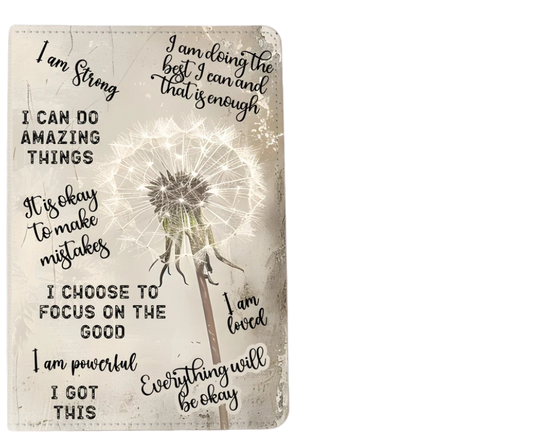 I am Strong
I am doing the
best I can and
that is enough
I CAN DO
AMAZING
THINGS
It is okay
to make
mistakes
I CHOOSE TO
FOCUS ON THE
GOOD
I am
loved
I am powerful
Everything will
be okay
I GOT
THIS